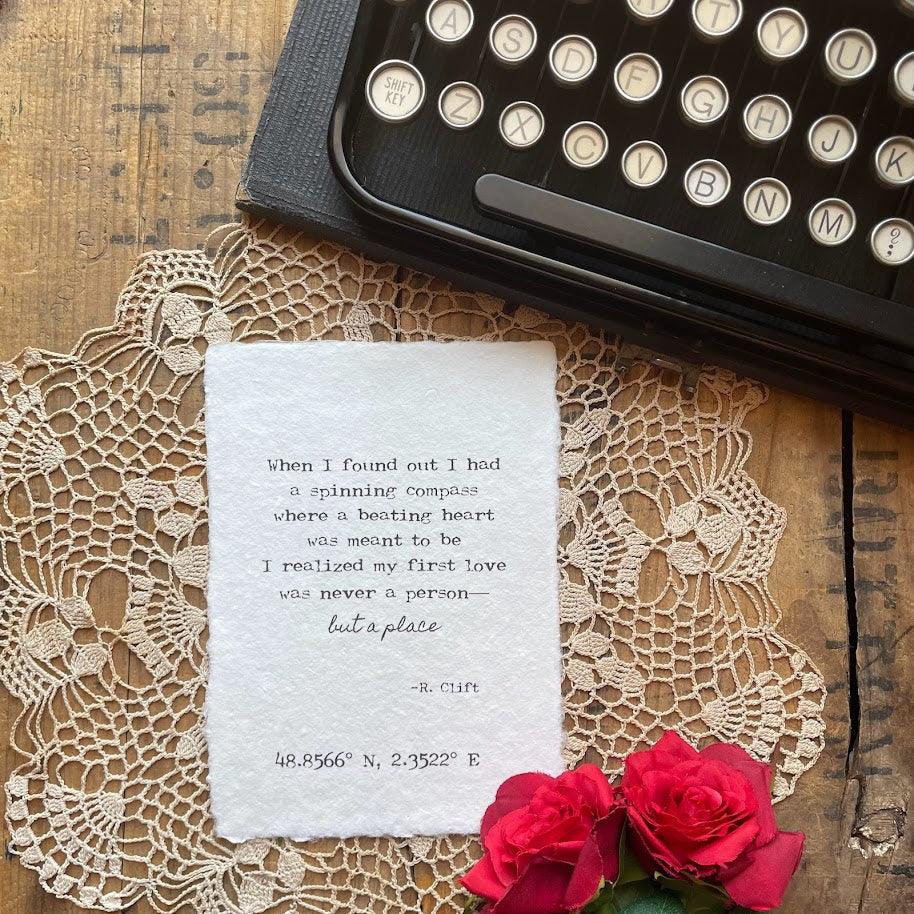 R T Y U
A S D F G H J K
SHIFT
KEY
Z X C V B N M ?
When I found out I had
a spinning compass
where a beating heart
was meant to be
I realized my first love
was never a person—
but a place
-R. Clift
48.8566° N, 2.3522° E